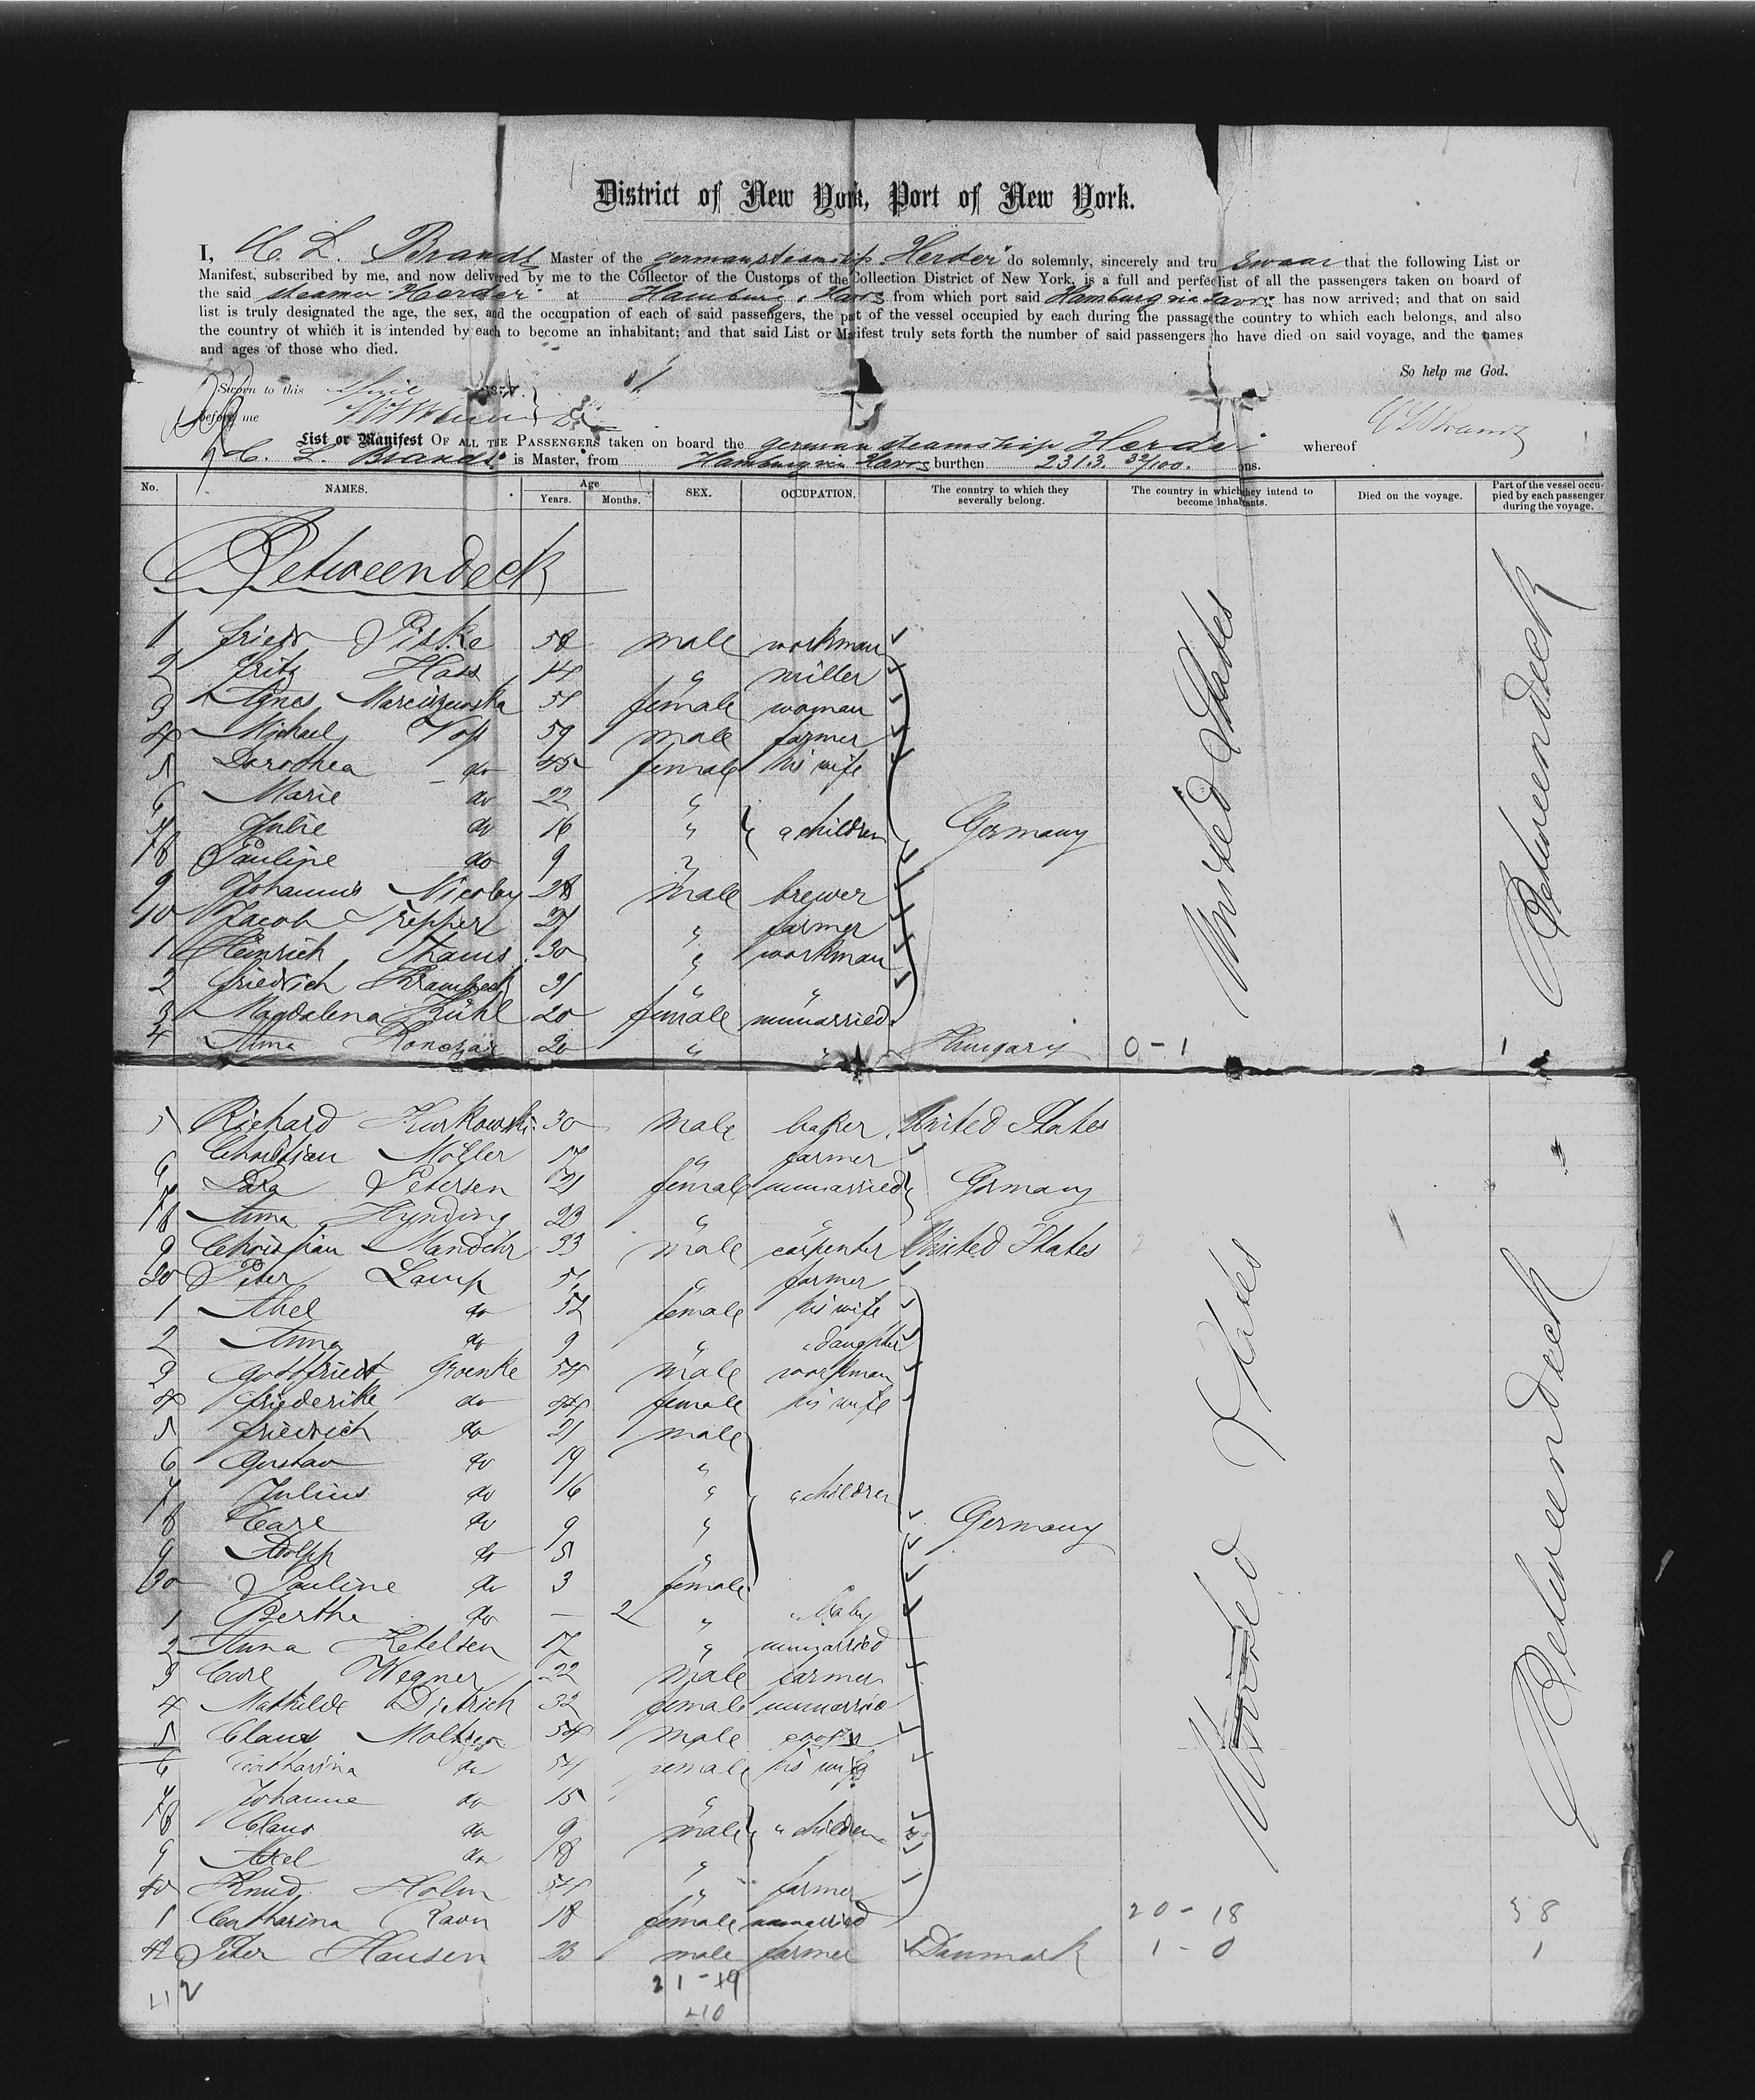 District of New York, Port of New York.
I, C. L. Brandt Master of the german steamship "Herder" do solemnly, sincerely and tru swear that the following List or
Manifest, subscribed by me, and now delivered by me to the Collector of the Customs of the Collection District of New York, is a full and perfec list of all the passengers taken on board of
the said steamer "Herder" at Hamburg & Havre from which port said Hamburg via Havre has now arrived; and that on said
list is truly designated the age, the sex, and the occupation of each of said passengers, the pa t of the vessel occupied by each during the passage the country to which each belongs, and also
the country of which it is intended by each to become an inhabitant; and that said List or Ma ifest truly sets forth the number of said passengers ho have died on said voyage, and the names
and ages of those who died.
So help me God.
Sworn to this April 187
before me
List or Manifest OF ALL THE PASSENGERS taken on board the german steamship Herder whereof
C. L. Brandt is Master, from Hamburg via Havre burthen 2313. 32/100. ons.
No. NAMES. Age Years. Months. SEX. OCCUPATION. The country to which they severally belong. The country in which they intend to become inhabitants. Died on the voyage. Part of the vessel occupied by each passenger during the voyage.
Betweendeck
1 Friedr Piske 58 male workman
2 Fritz Hass 14 " miller
3 Agnes 51 female woman
4 Michael Voss 59 male farmer
5 Dorothea do 45 female his wife
6 Marie do 22 "
7 Julie do 16 " " children Germany
8 Pauline do 9 "
9 Johannes Nicolay 28 male brewer
10 Jacob Trepper 27 " farmer
1 Heinrich Thams 30 " workman
2 Friedrich Krambeck 31 " "
3 Magdalena Kühl 20 female unmarried
4 Anna Konczar 20 " " Hungary 0-1 1
United States
Betweendeck
5 Richard Kurkowski 30 male baker United States
6 Christian Möller 17 " farmer
7 Dora Petersen 21 female unmarried Germany
8 Anna Hynding 23 " "
9 Christian Mandehr 33 male carpenter United States
20 Peter Lamp 51 " farmer
1 Abel do 52 female his wife
2 Anna do 9 " " daughter
3 Gottfriedt Groenke 54 male workman
4 Friederike do 44 female his wife
5 Friedrich do 21 male
6 Gustav do 19 "
7 Julius do 16 " " children
8 Carl do 9 " Germany
9 Adolph do 5 "
30 Pauline do 3 female
1 Bertha do — 2 " " baby
2 Anna Ketelsen 17 " unmarried
3 Carl Wegner 22 male farmer
4 Mathilde Dietrich 32 female unmarried
5 Claus 54 male
6 Catharina do 51 female his wife
7 Johanne do 15 "
8 Claus do 9 male " children
9 Axel do 8 "
40 Knud Holm 54 " farmer
1 Catharina Ravn 18 female unmarried 20-18 38
42 Peter Hansen 23 male farmer Danmark 1-0 1
United States
Betweendeck
21-19